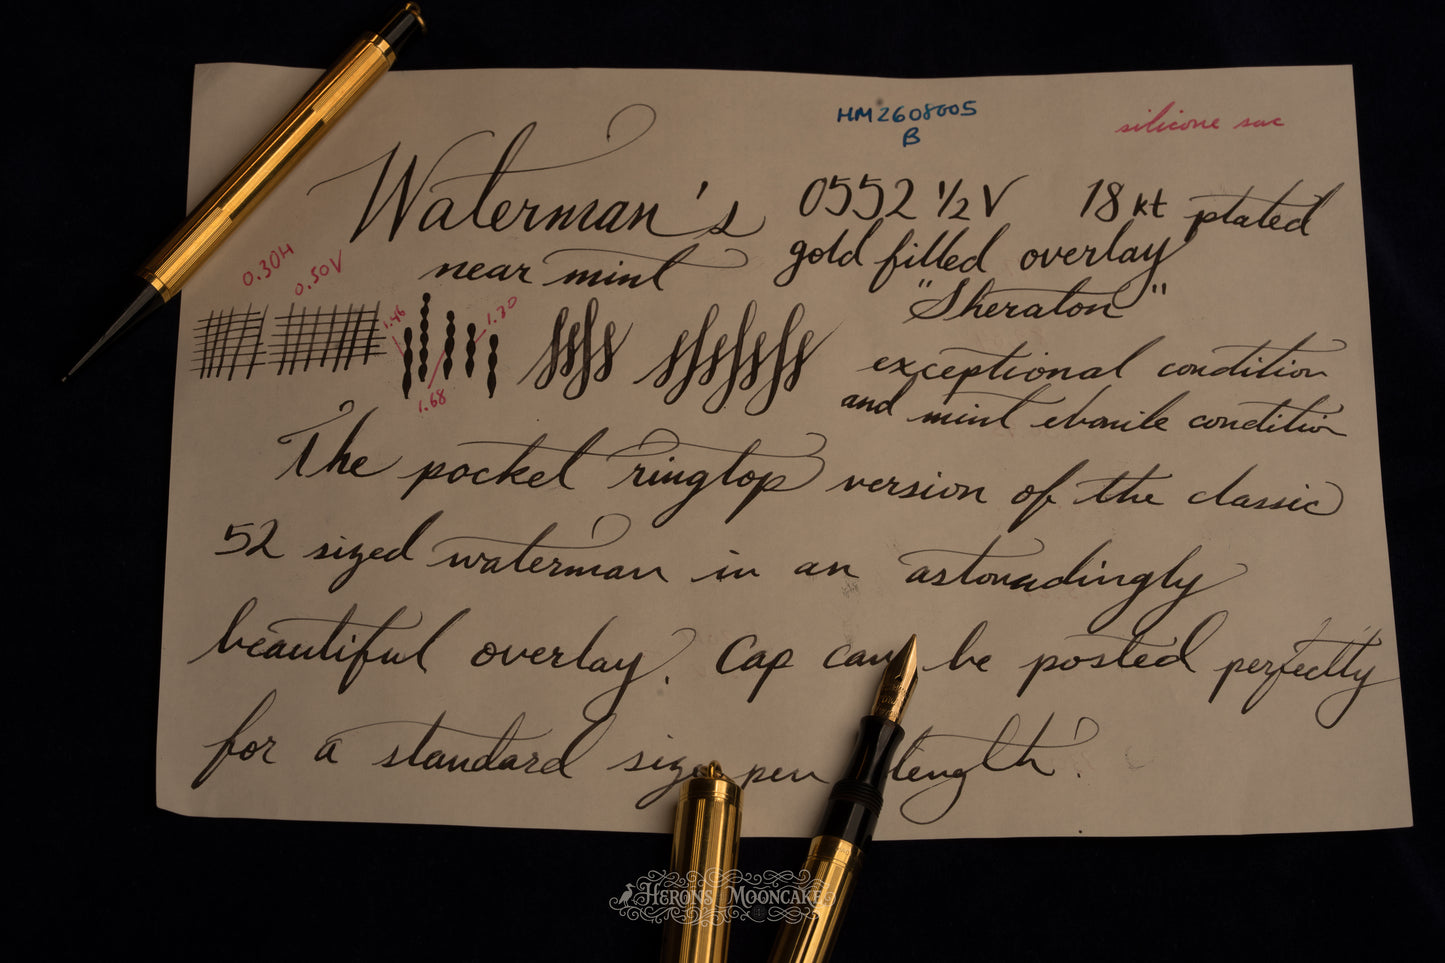 HM2608005
B
silicone sac
Waterman's 0552 ½ V 18 kt plated
near mint gold filled overlay
"Sheraton"
0.30H
0.50V
1.46
1.20
1.68
exceptional condition
and mint ebonite condition
The pocket ringtop version of the classic
52 sized waterman in an astonadingly
beautiful overlay. Cap can be posted perfectly
for a standard size pen length.
HERONS MOONCAKE